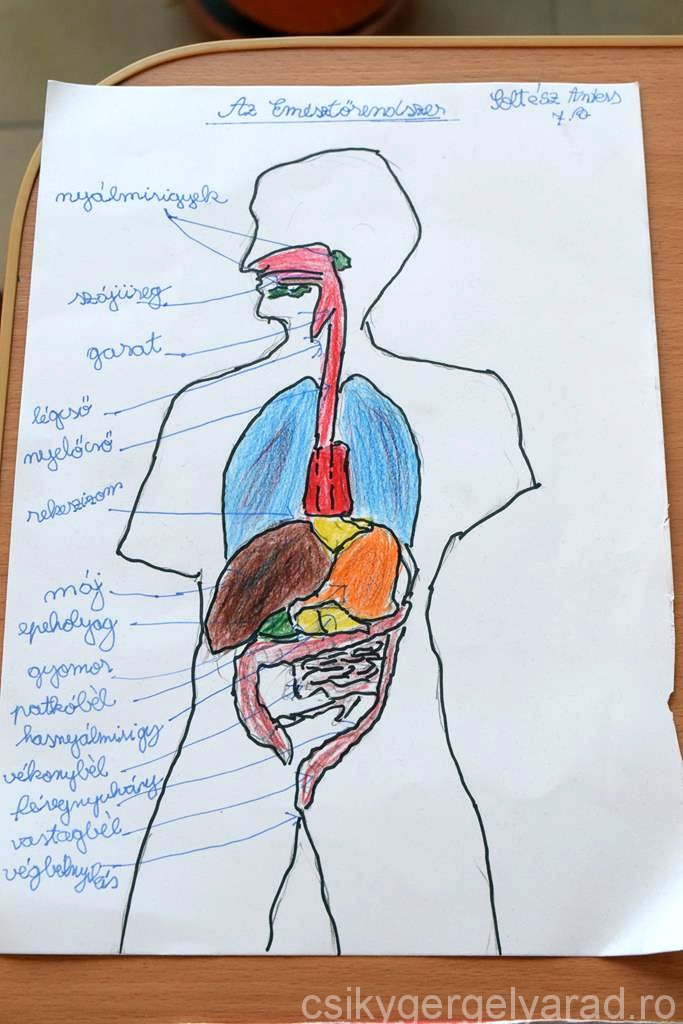 Az Emésztőrendszer
Soltész
7.
nyálmirigyek
szájüreg
garat
légcső
nyelőcső
rekeszizom
máj
epehólyag
gyomor
patkóbèl
hasnyálmirigy
vékonybèl
féregnyulvány
vastagbèl
végbélnyílás
csikygergelyarad.ro